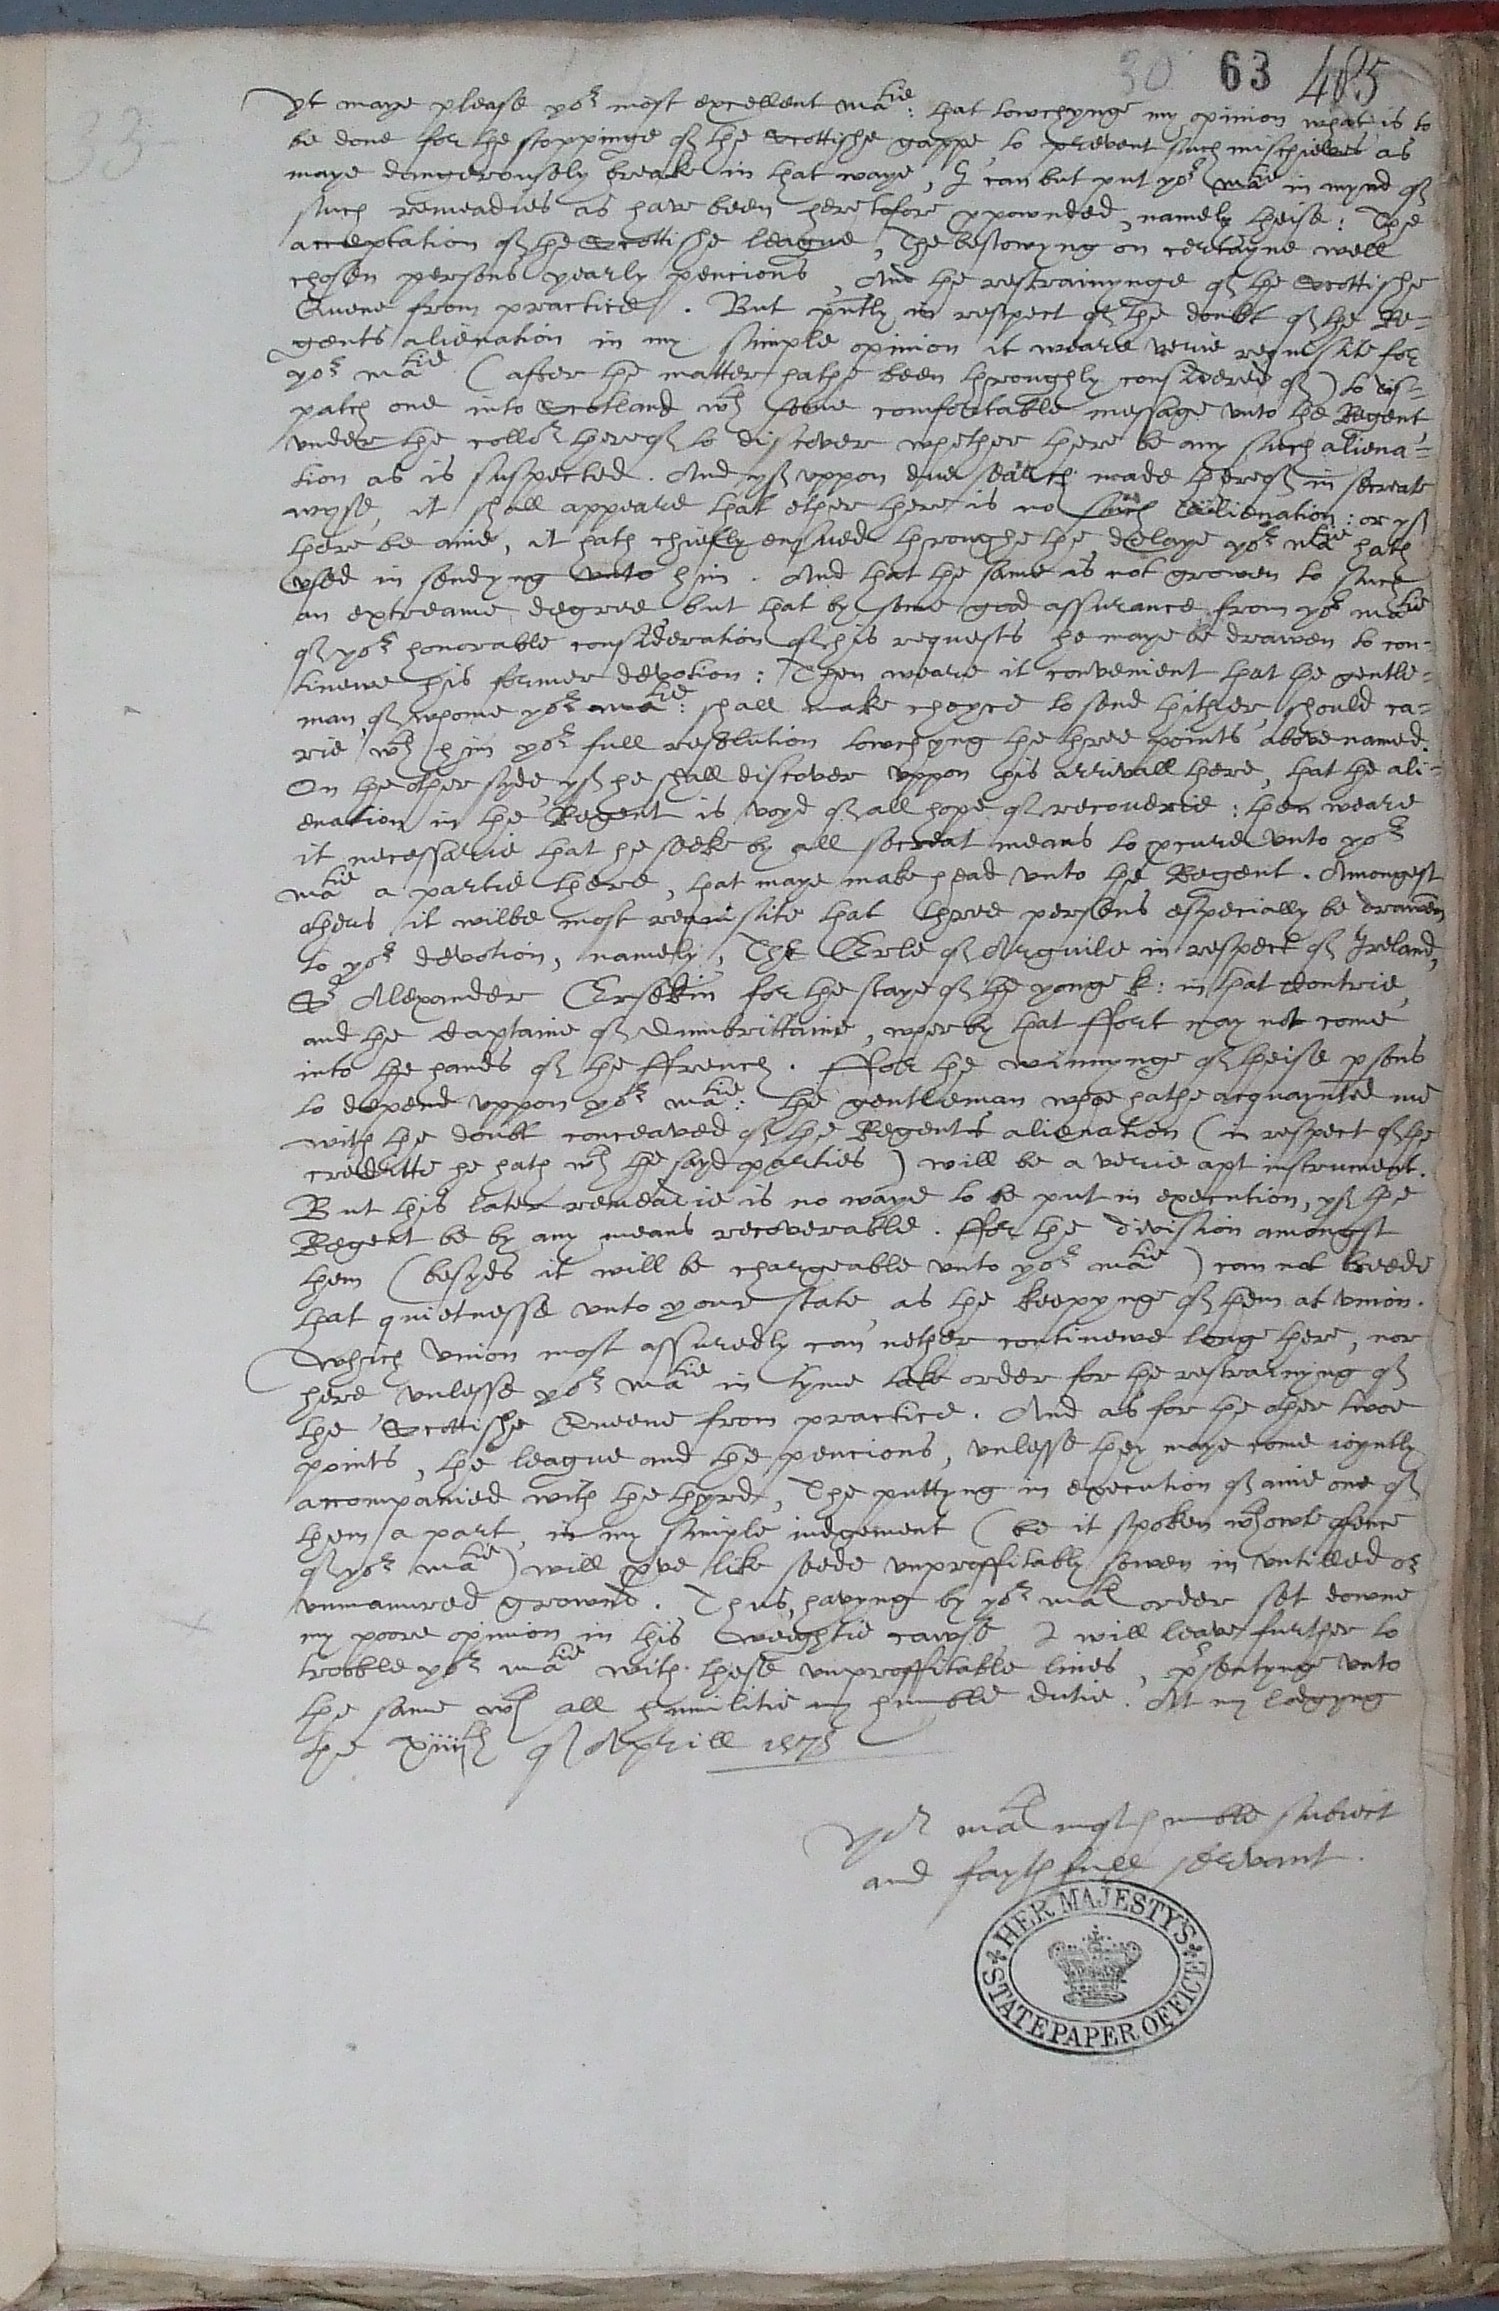 30 63 405
33
Yt maye please yor most excellent Matie: that towchyng my opinion what is to
be done for the stoppinge of the Scottishe gappe, to prevent such mischieves as
maye dangerousely breake in that waye, I can but put yor Matie in mynd of
such remeadies as have been heretofore ppownded, namely theise: The
acceptation of the Scottishe league, The bestowyng on certayne well
chosen persons yearly pencions, And the restrainynge of the Scottishe
Quene from practice. But pntly in respect of the doubt of the Re-
gents alienation in my simple opinion it weare verie requisite for
yor Matie (after the matter hathe been throughly considered of) to dis-
patch one into Scotland wth some comfortable message unto the Regent,
under the collor thereof to discover whether there be any such aliena-
tion as is suspected. And yf uppon due search made thereof in secreate
wyse, it shall appeare that ether there is no such alienation: or yf
there be anie, it hath chiefly ensued throughe the delaye yor Matie hath
used in sendyng unto him. And that the same is not growen to such
an extreame degree but that by some good assurance from yor Matie
of yor honorable consideration of his requests he maye be drawen to con-
tinewe his former devotion: Then weare it convenient that the gentle-
man, of whome yor Matie: shall make choyce to send thither, should ca-
rie wth him yor full resolution towchyng the three points above named.
On the other syde, yf he shall discover uppon his arrivall there, that the ali-
enation in the Regent is voyd of all hope of recoverie: then weare
it necessarie that he seeke by all secreat means to pcure unto yor
Matie a partie there, that maye make head unto the Regent. Amongest
others it wilbe most requisite that three persons especially be drawen
to yor devotion, namely, The Erle of Arguile in respect of Ireland,
Sr Alexander Erskin for the staye of the yonge k: in that contrie,
and the Captaine of Dunbrittaine, wherby that ffort may not come
into the hands of the ffrench. ffor the winnynge of theise psons
to depend uppon yor Matie: the gentleman who hathe acquaynted me
with the doubt conceaved of the Regents alienation (in respect of the
creditte he hath wth the sayd parties) will be a verie apt instrument.
But this later remeadie is no waye to be put in execution, yf the
Regent be by any means recoverable. ffor the division amongst
them (besyds it will be chargeable unto yor Matie) can not breede
that quietnesse unto your state, as the keepynge of them at union.
Which union most assuredly can nether continewe longe there, nor
here, unlesse yor Matie in tyme take order for the restrainyng of
the Scottishe Queene from practice. And as for the other twoe
points, the league and the pencions, unlesse they maye come ioyntly
accompanied with the thyrd, The puttyng in execution of anie one of
them a part, in my simple iudgement (be it spoken wthowte offence
of yor Matie) will pve like seede unproffitably sowen in untilled or
unmanured grownd. Thus, havyng by yor Mats order set downe
my poore opinion in this weightie cawse, I will leave further to
trooble yor Matie with these unproffitable lines, psentynge unto
the same wth all humilitie my humble dutie. At my lodgyng
the xiiiith of Aprill 1575
Yor Mats most humble subiect
and faythfull servant.
HER MAJESTY'S
STATE PAPER OFFICE